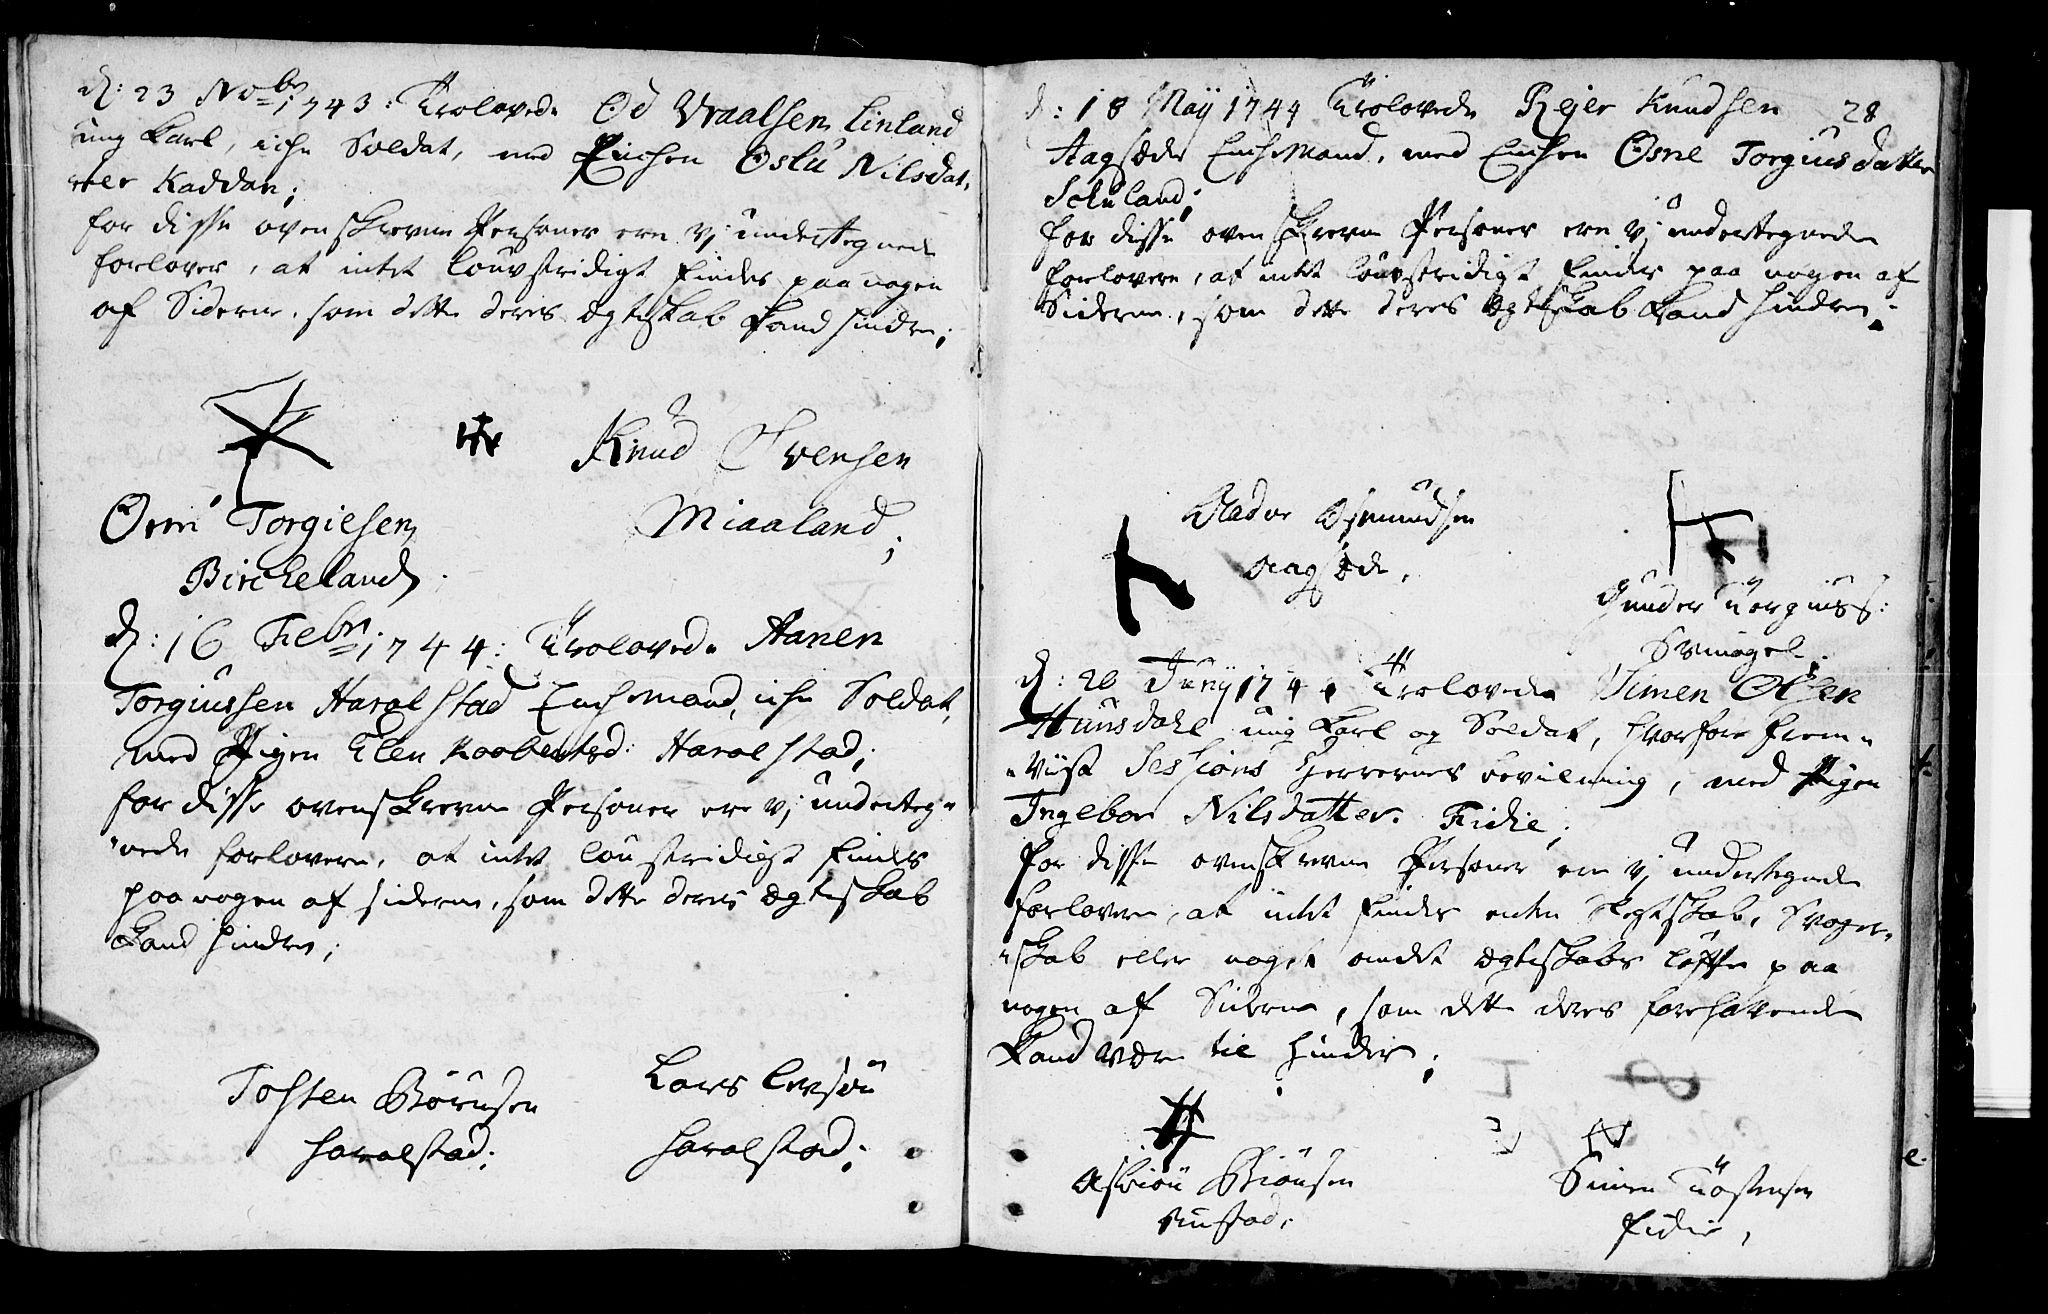 d: 23 Nobr 1743: Trolovede Od Vraalsen Linland
ung Karl, iche Soldat, med Enchen Oslu Nilsdat.
Kaddan;
for disse ovenskrevne Personer ere vj undertegnede
forlover, at intet louvstridigt findes paa nogen
af Siderne, som dette deres Ægteskab kand hindre;
Knud Svensen
Miaaland;
Orm Torgiesen
Bircheland.
d: 16 Febr: 1744: Trolovede Aanen
Torgiussen Haralstad Enchemand, iche Soldat,
med Pigen Elen Roobertsd: Haralstad;
for disse ovenskrevne Personer ere vj underteg-
nede forlovere, at intet loustridigt findes
paa nogen af siderne, som dette deres Ægteskab
kand hindre;
Tosten Biörnsen
Haralstad;
Lars
Haralstad;
d: 18 Maij 1744 Trolovede Rejer Knudsen 28
Aagsæde Enchemand, med Enchen Osne Torgiusdatter
for disse ovenskrevne Personer ere vj undertegnede
forlovere, at intet louvstridigt findes paa nogen af
Siderne, som dette deres Ægteskab kand hindre;
Osmundsen
Aagsæde,
Gunder Torgiuss:
d: 20 Junij 1744 Trolovede Simen Olsen
Hunsdahl ung Karl og Soldat, hvorfore frem-
viist Sessions Herrernes bevilning, med Pigen
Ingebor Nilsdatter Fidie;
for disse ovenskrevne Personer ere vj undertegnede
forlovere, at intet findes enten Slegtskab, Svoger-
skab eller noget andet Ægteskabs løfte paa
nogen af Siderne, som dette deres forehavende
kand være til hinder;
Asbiön Biönsen
Simen Tostensen
Fidie,